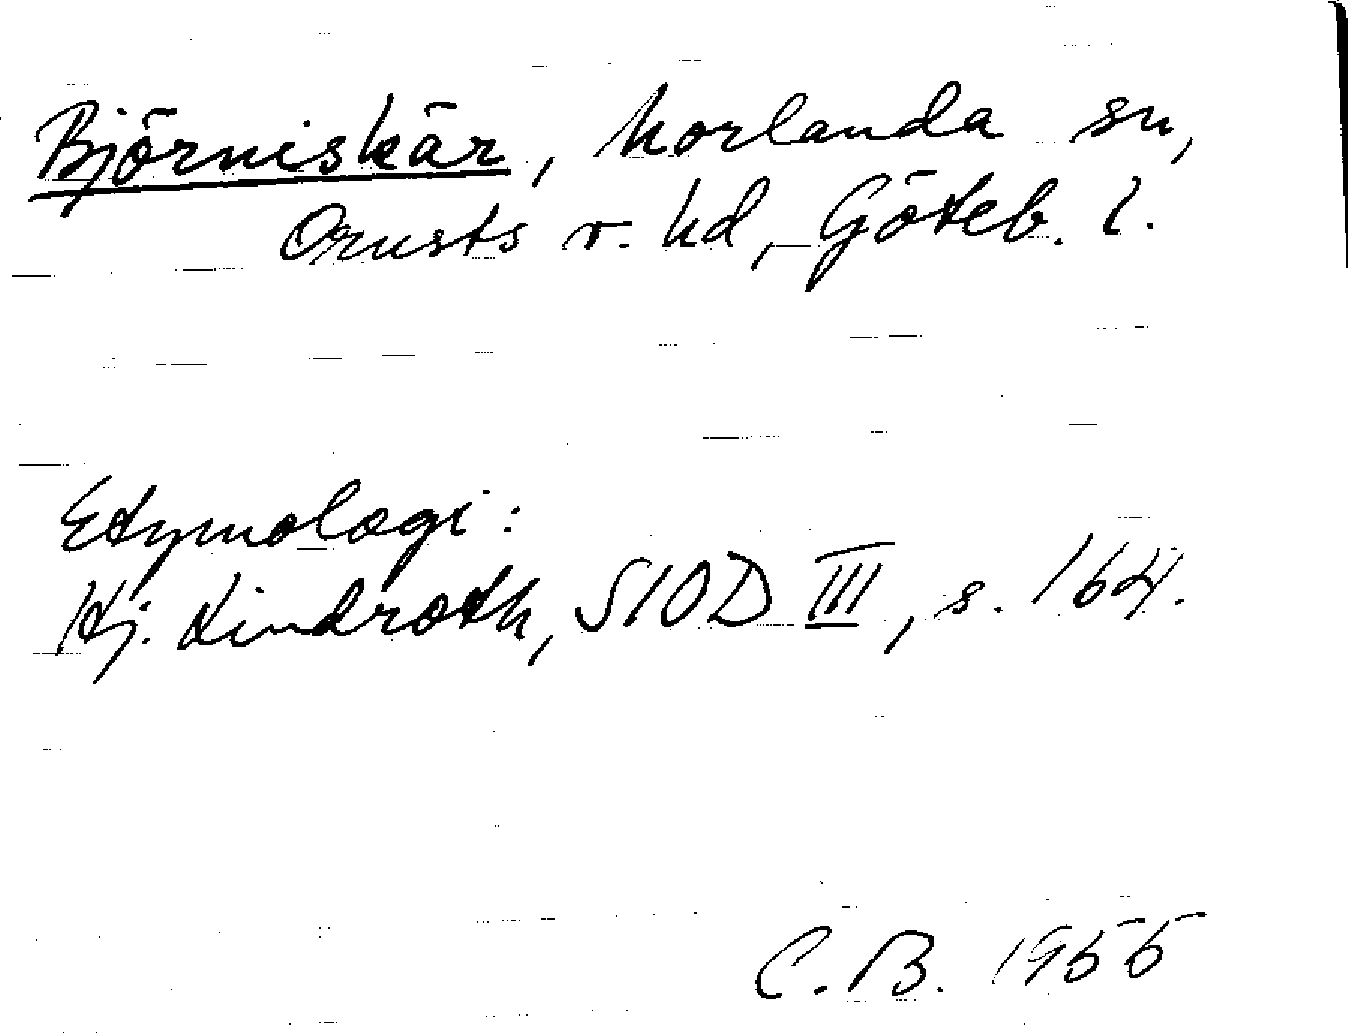 Björniskär, Morlanda sn,
Orusts v. hd, Göteb. l.
Etymologi:
Hj. Lindroth, SIOD III, s. 164.
C. B. 1955